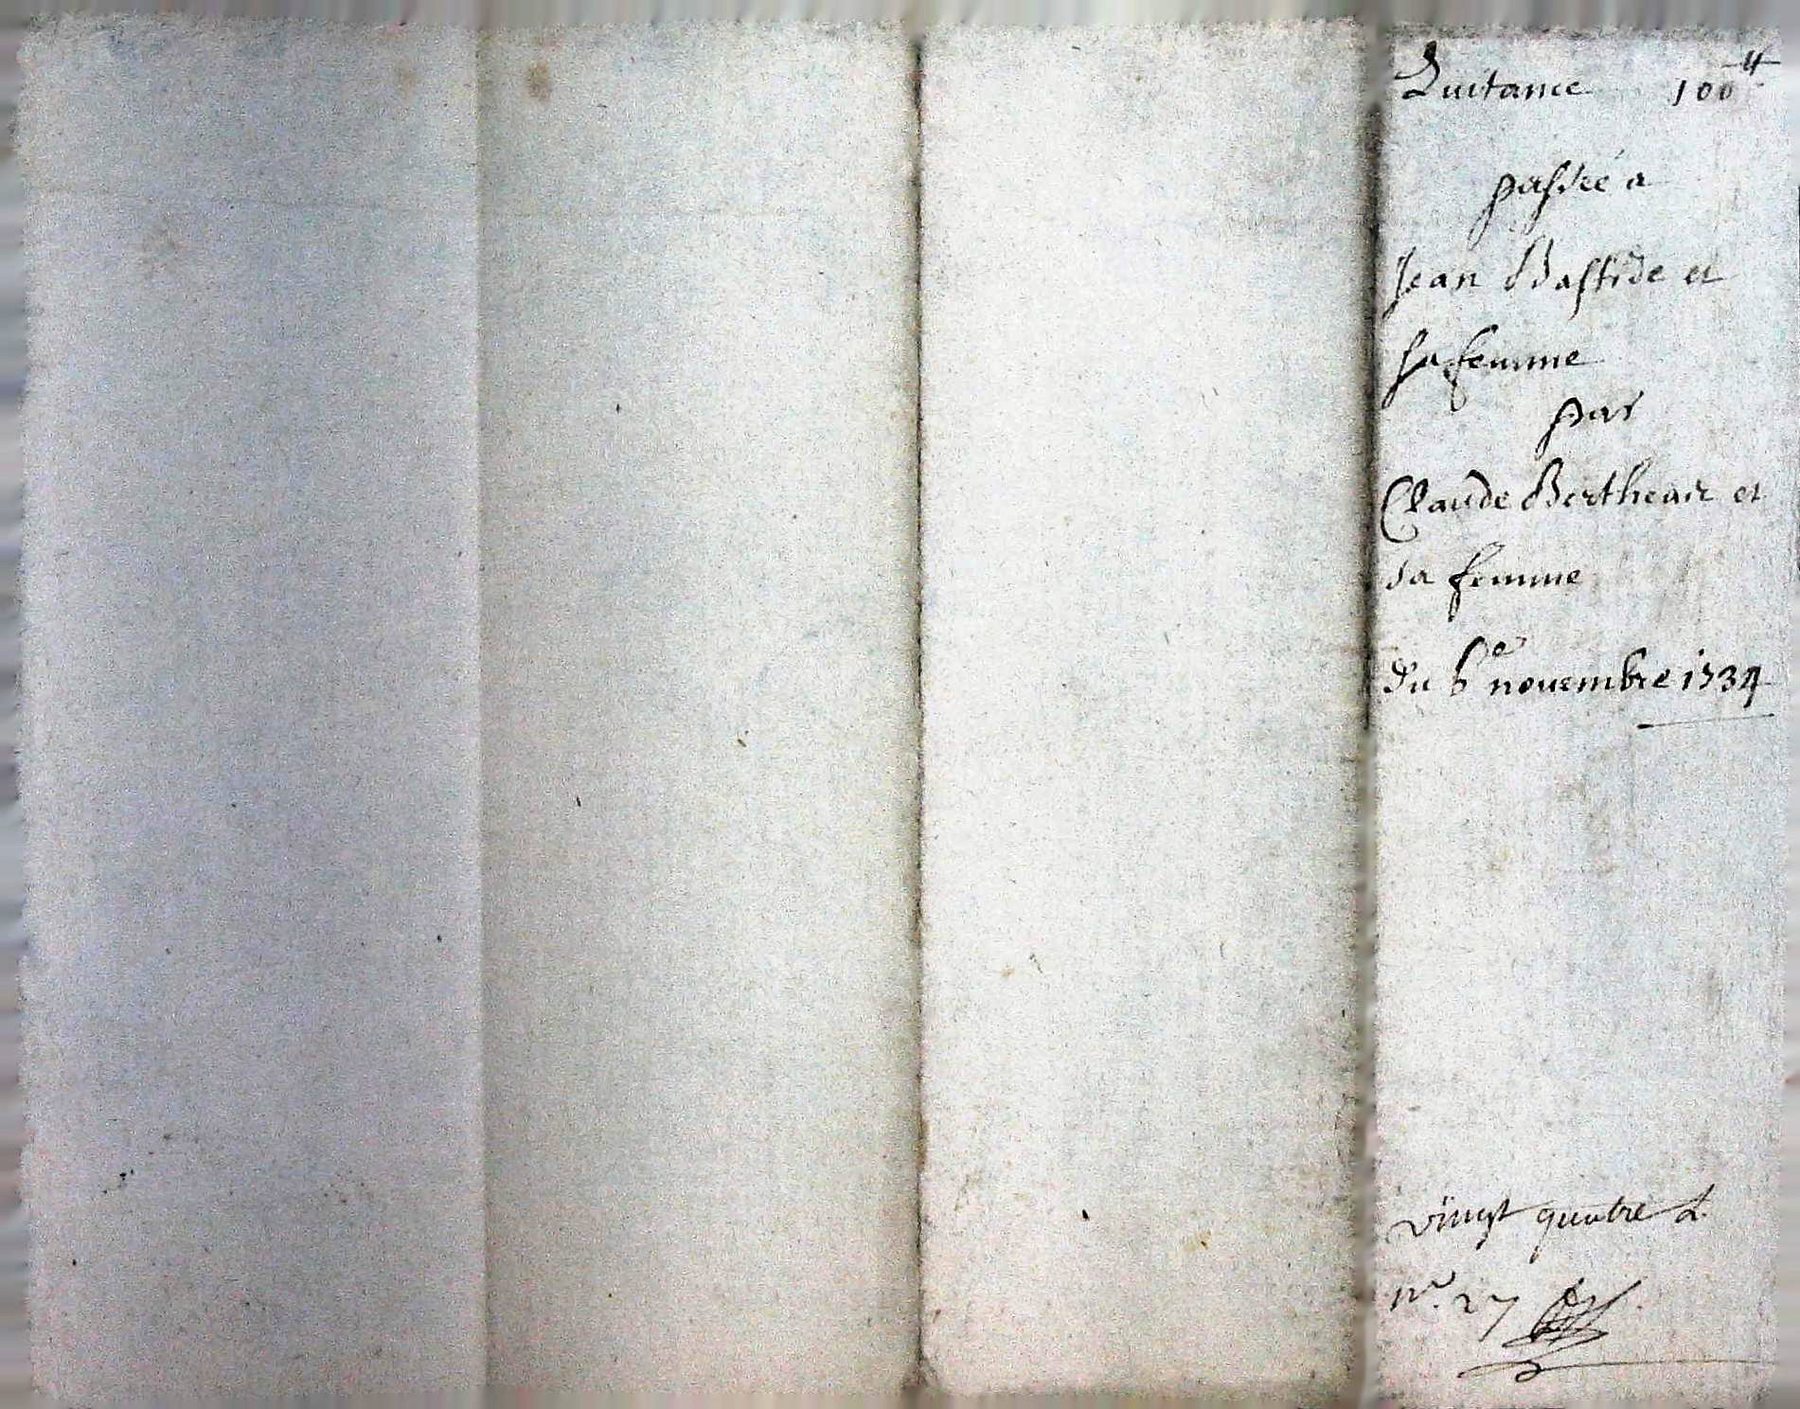 Quitance 100ᵗᵗ
passée a
Jean Bastide et
sa femme
par
Claude Bertheair et
sa femme
du 6ᵉ novembre 1734
vingt quatre d.
nᵒ. 27